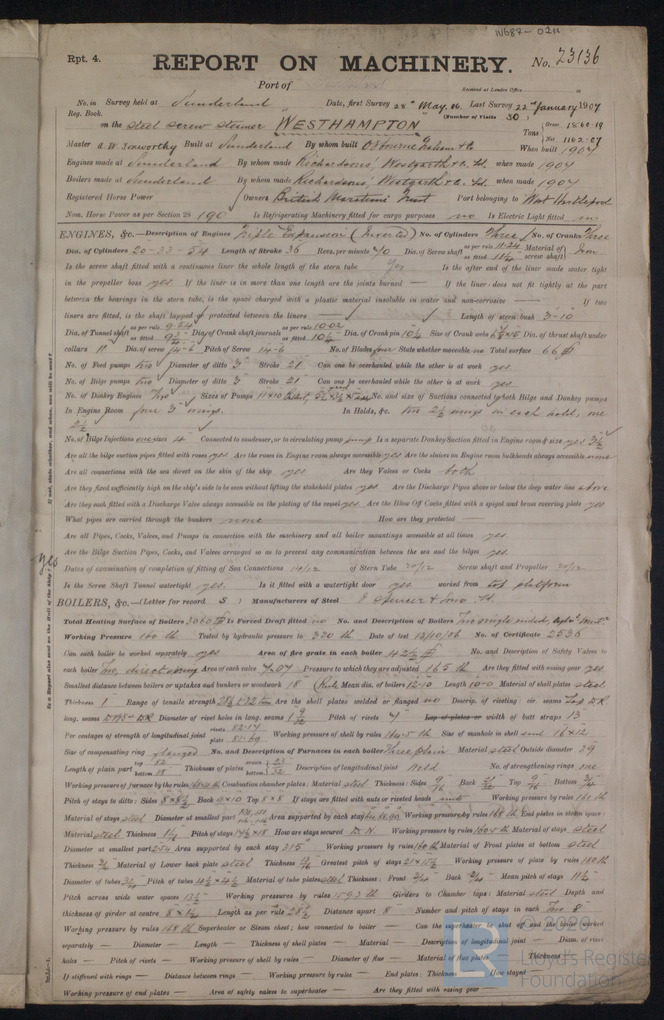 W687-0211
Rpt. 4.
REPORT ON MACHINERY. No. 23136
Port of
Received at London Office
No. in Survey held at Sunderland Date, first Survey 28th May, 06. Last Survey 22nd January 1907
Reg. Book. (Number of Visits 30)
on the steel screw steamer WESTHAMPTON Tons Gross 1800.19 Net 1162.07
Master Built at Sunderland By whom built When built 1907
Engines made at Sunderland By whom made Richardsons, Westgarth & Co. Ld. when made 1907
Boilers made at Sunderland By whom made Richardsons, Westgarth & Co. Ld. when made 1907
Registered Horse Power Owners British Maritime Trust Port belonging to West Hartlepool
Nom. Horse Power as per Section 28 190 Is Refrigerating Machinery fitted for cargo purposes no Is Electric Light fitted no
ENGINES, &c.—Description of Engines Triple Expansion (Inverted) No. of Cylinders Three No. of Cranks Three
Dia. of Cylinders 20-33-54 Length of Stroke 36 Revs. per minute 70 Dia. of Screw shaft as per rule 11.24 as fitted 11 Material of screw shaft Iron
Is the screw shaft fitted with a continuous liner the whole length of the stern tube Yes Is the after end of the liner made water tight
in the propeller boss yes If the liner is in more than one length are the joints burned — If the liner does not fit tightly at the part
between the bearings in the stern tube, is the space charged with a plastic material insoluble in water and non-corrosive — If two
liners are fitted, is the shaft lapped or protected between the liners Length of stern bush 3-10
Dia. of Tunnel shaft as per rule as fitted Dia. of Crank shaft journals as per rule 10.02 as fitted Dia. of Crank pin Size of Crank webs Dia. of thrust shaft under
collars 11 Dia. of screw 14-6 Pitch of Screw 14-6 No. of Blades four State whether moveable no Total surface 66
No. of Feed pumps two Diameter of ditto 3" Stroke 21 Can one be overhauled while the other is at work yes
No. of Bilge pumps two Diameter of ditto 3" Stroke 21 Can one be overhauled while the other is at work yes
No. of Donkey Engines Two Sizes of Pumps No. and size of Suctions connected to both Bilge and Donkey pumps
In Engine Room four 3" wings. In Holds, &c. two 2½ wings in each hold, one
2½
No. of Bilge Injections one sizes 4" Connected to condenser, or to circulating pump pump Is a separate Donkey Suction fitted in Engine room & size yes 3½
Are all the bilge suction pipes fitted with roses yes Are the roses in Engine room always accessible yes Are the sluices on Engine room bulkheads always accessible none
Are all connections with the sea direct on the skin of the ship yes Are they Valves or Cocks both
Are they fixed sufficiently high on the ship's side to be seen without lifting the stokehold plates yes Are the Discharge Pipes above or below the deep water line above
Are they each fitted with a Discharge Valve always accessible on the plating of the vessel yes Are the Blow Off Cocks fitted with a spigot and brass covering plate yes
What pipes are carried through the bunkers none How are they protected —
Are all Pipes, Cocks, Valves, and Pumps in connection with the machinery and all boiler mountings accessible at all times yes.
Are the Bilge Suction Pipes, Cocks, and Valves arranged so as to prevent any communication between the sea and the bilges yes.
Dates of examination of completion of fitting of Sea Connections of Stern Tube 20/12 Screw shaft and Propeller 20/12
Is the Screw Shaft Tunnel watertight yes. Is it fitted with a watertight door yes worked from top platform
BOILERS, &c.—(Letter for record S) Manufacturers of Steel J Spencer & Sons Ld.
Total Heating Surface of Boilers 3060 Is Forced Draft fitted no No. and Description of Boilers Two single ended
Working Pressure 160 lb Tested by hydraulic pressure to 320 lb Date of test 12/10/06 No. of Certificate 2536
Can each boiler be worked separately yes Area of fire grate in each boiler 42½ No. and Description of Safety Valves to
each boiler Two, direct spring Area of each valve 7.07 Pressure to which they are adjusted 165 lb Are they fitted with easing gear yes
Smallest distance between boilers or uptakes and bunkers or woodwork 18" Mean dia. of boilers 12-10 Length 10-0 Material of shell plates steel
Thickness 1" Range of tensile strength 28½-32 tons Are the shell plates welded or flanged no Descrip. of riveting: cir. seams Lap DR
long. seams Diameter of rivet holes in long. seams 1 Pitch of rivets 7" Lap of plates or width of butt straps 15"
Per centages of strength of longitudinal joint rivets 82.17 plate Working pressure of shell by rules lb Size of manhole in shell end 16×12
Size of compensating ring flanged No. and Description of Furnaces in each boiler Three plain Material steel Outside diameter 39
Length of plain part top 82 bottom 78 Thickness of plates crown bottom Description of longitudinal joint Weld No. of strengthening rings one
Working pressure of furnace by the rules Combustion chamber plates: Material steel Thickness: Sides 9/16 Back 21/32 Top 9/16 Bottom 3/4
Pitch of stays to ditto: Sides 8×8½ Back 9×10 Top 8×8 If stays are fitted with nuts or riveted heads nuts Working pressure by rules 160 lb
Material of stays steel Diameter at smallest part Area supported by each stay Working pressure by rules 168 lb End plates in steam space:
Material steel Thickness Pitch of stays How are stays secured D.N. Working pressure by rules Material of stays steel
Diameter at smallest part Area supported by each stay 315 Working pressure by rules 160 lb Material of Front plates at bottom steel
Thickness 3/4 Material of Lower back plate steel Thickness Greatest pitch of stays Working pressure of plate by rules 180 lb
Diameter of tubes 3¼ Pitch of tubes 4½×4½ Material of tube plates steel Thickness: Front 3/4 Back 3/4 Mean pitch of stays
Pitch across wide water spaces 13½ Working pressures by rules Girders to Chamber tops: Material steel Depth and
thickness of girder at centre Length as per rule Distance apart 8" Number and pitch of stays in each Two 8"
Working pressure by rules 168 lb Superheater or Steam chest; how connected to boiler — Can the superheater be shut off and the boiler worked
separately — Diameter — Length — Thickness of shell plates — Material — Description of longitudinal joint — Diam. of rivet
holes — Pitch of rivets — Working pressure of shell by rules — Diameter of flue — Material of flue plates — Thickness
If stiffened with rings — Distance between rings — Working pressure by rules — End plates: Thickness — How stayed
Working pressure of end plates — Area of safety valves to superheater — Are they fitted with easing gear —
Is a Report also sent on the Hull of the ship? yes
If not, state whether, and when, one will be sent?
© 2020
Lloyd's Register
Foundation
LR